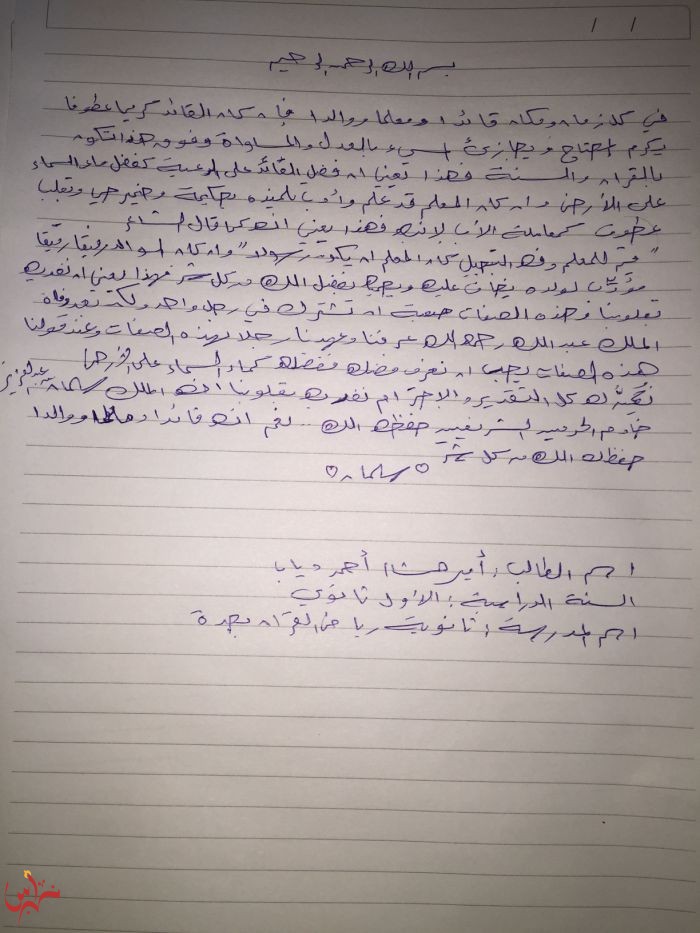 / /
بسم الله الرحمن الرحيم
في كل زمان ومكان قائدا ومعلما ووالدا فإن كان القائد كريما عطوفا
يكرم المحتاج ويجازي المسيء بالعدل والمساواة وفوق هذا تكون
بالقرآن والسنة فهذا يعني ان فضل القائد على الرعية كفضل ماء السماء
على الأرض وان كان المعلم قد علم وأدب تلميذه بحكمة وضمير حي وقلب
عطوف كمعاملة الأب لإبنه فهذا يعني انه كما قال الشاعر
"قم للمعلم وفه التبجيل كاد المعلم ان يكون رسولا" وان كان الوالد رفيقا رقيقا
مؤدب لولده يخاف عليه ويحميه بفضل الله من كل شر فهذا يعني ان نفديه
بقلوبنا وهذه الصفات صعبة ان تشترك في رجل واحد ولكن بعد وفاة
الملك عبد الله رحمه الله عرفنا وعهدنا رجلا بهذه الصفات وعند قولنا
هذه الصفات يجب ان نعرف فضله ففضله كماء السماء على الأرض
نكن له كل التقدير والاحترام نفديه بقلوبنا انه الملك سلمان بن عبدالعزيز
خادم الحرمين الشريفين حفظه الله .. نعم انه قائدا ومعلما ووالدا
حفظك الله من كل شر
♡ سلمان ♡
اسم الطالب : أمير هشام أحمد دياب
السنة الدراسية : الأول ثانوي
اسم المدرسة : ثانوية رياض القرآن بجدة